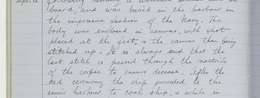 board, and was buried in the harbour in
the impressive fashion of the Navy. The
body was enclosed in canvas, with shot
placed at the feet, & the canvas then being
stitched up. It is always said that the
last stitch is passed through the nostrils
of the corpse to ensure decease. After the
the ship proceeded to the
harbour to coal ship, & while in